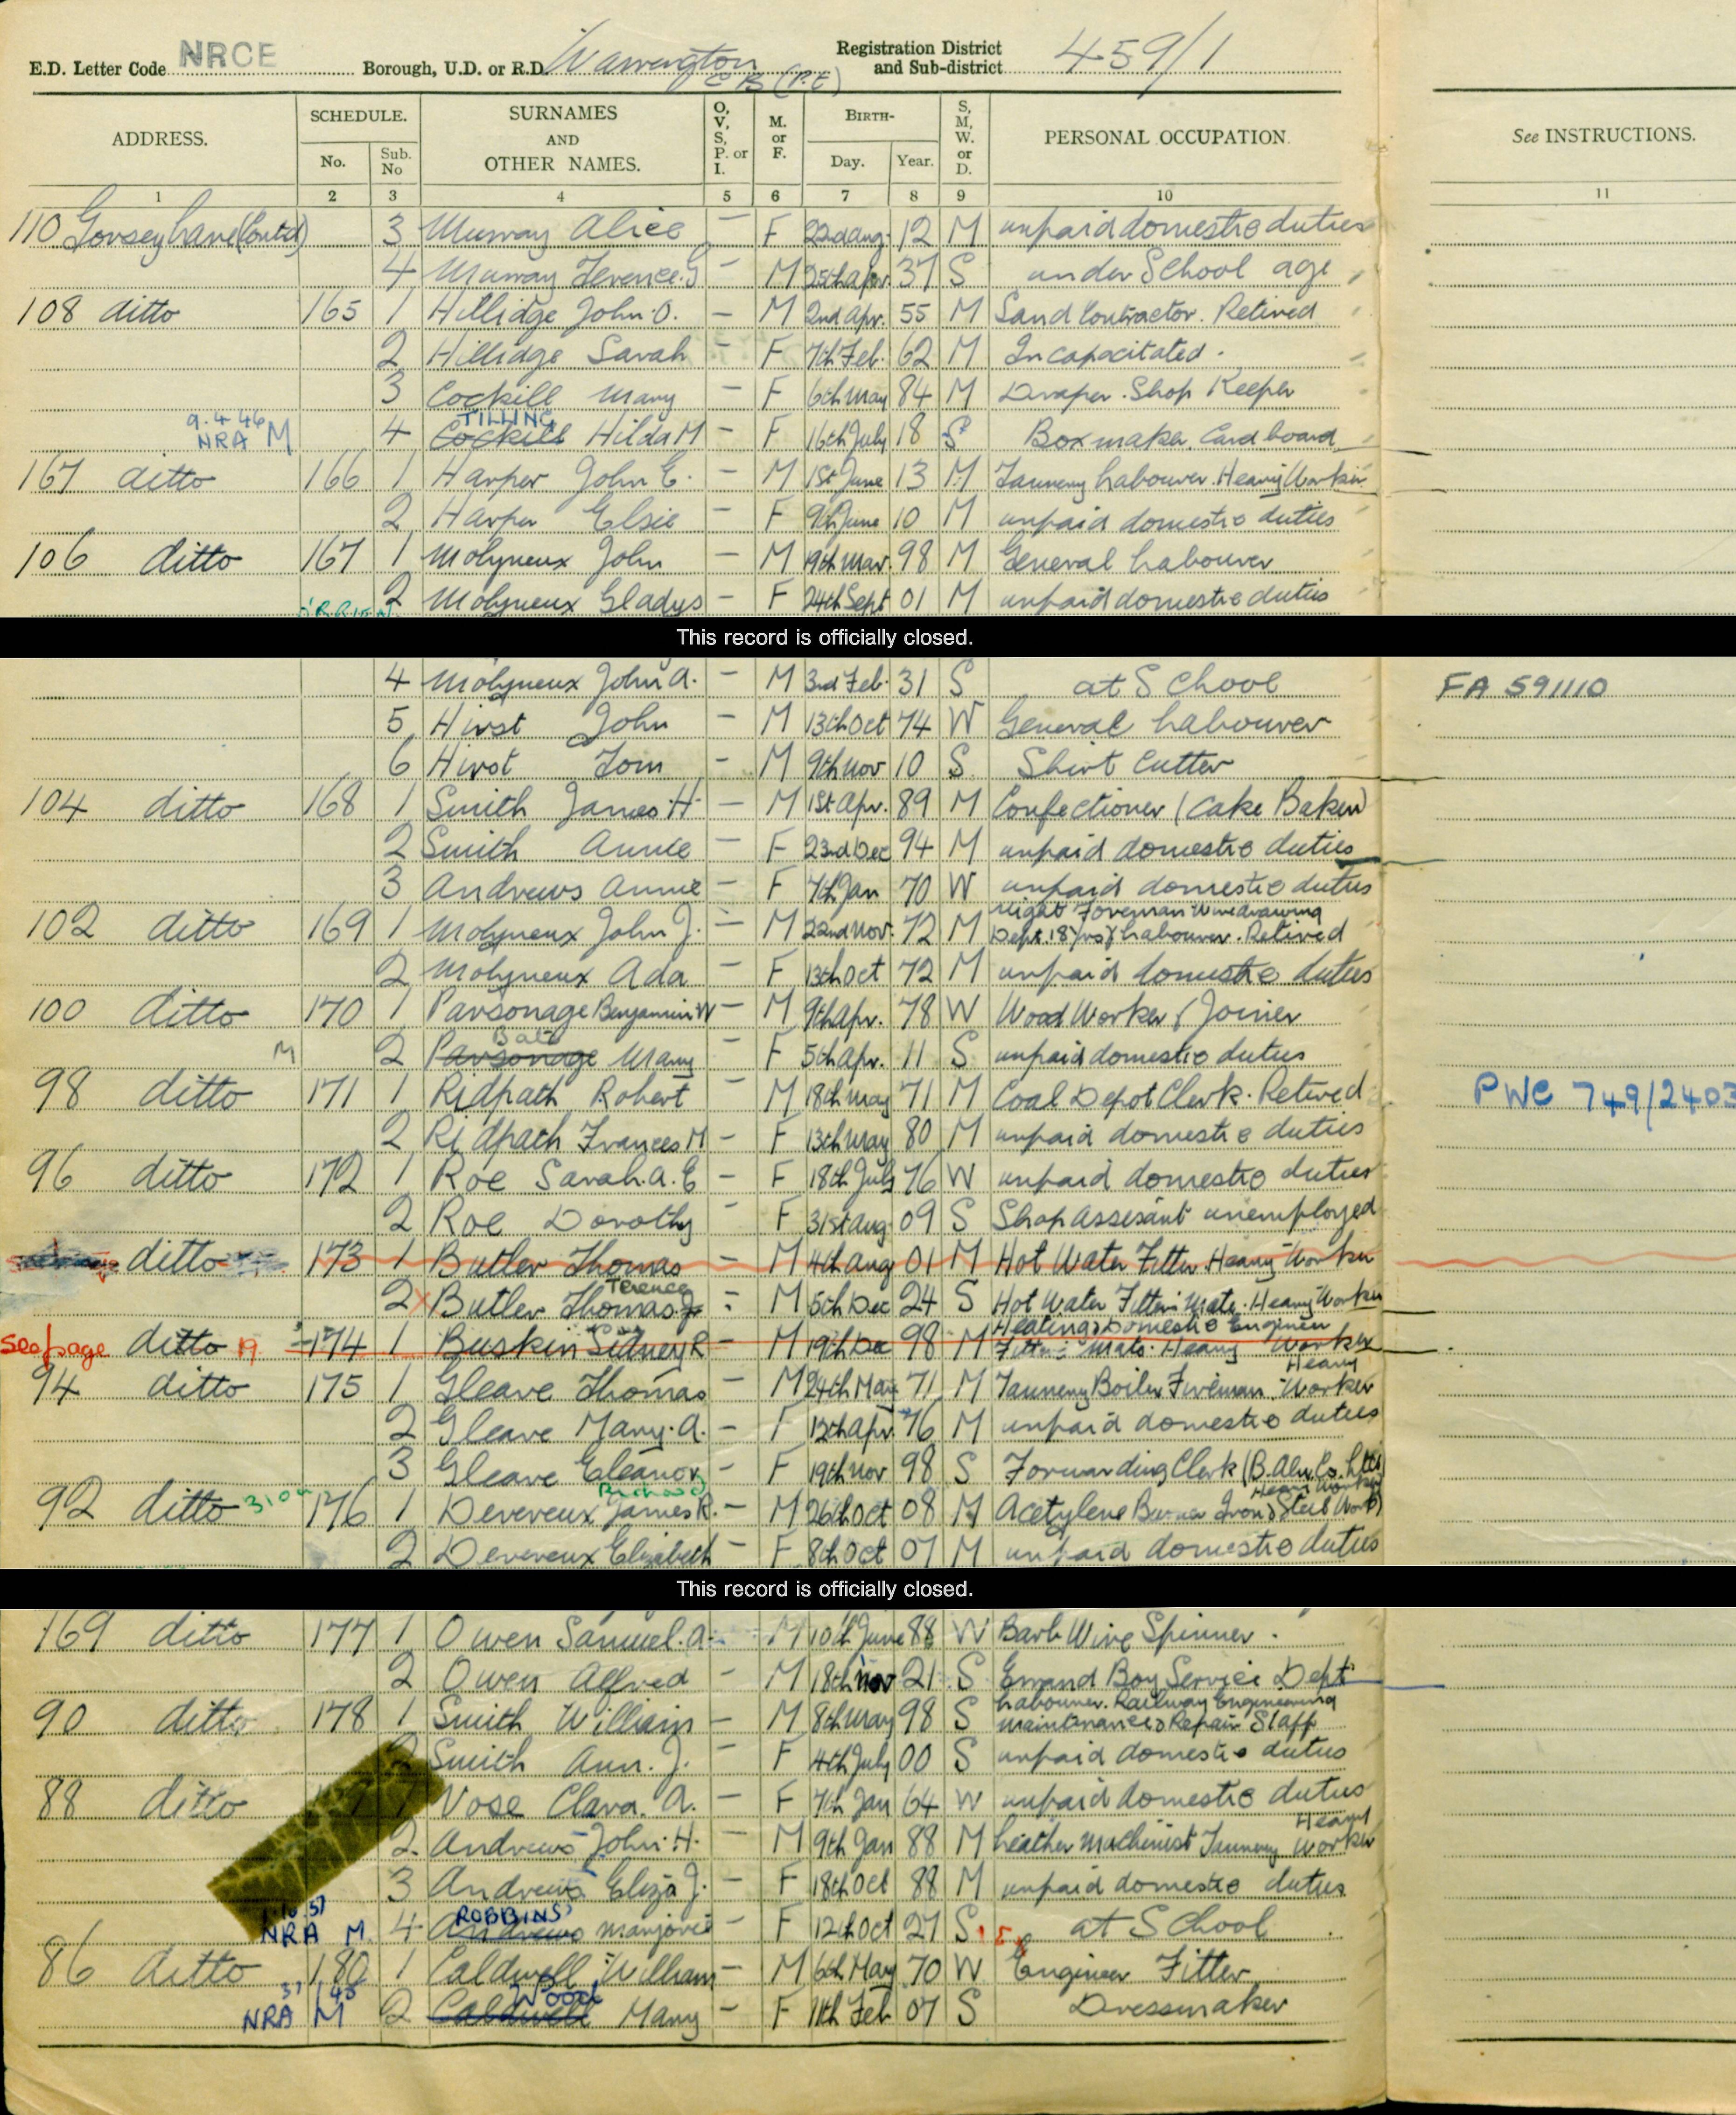 E.D. Letter Code NRCE Borough, U.D. or R.D. Warrington C B (P.E) Registration District and Sub-district 459/1
ADDRESS. SCHEDULE. No. Sub. No SURNAMES AND OTHER NAMES. O, V, S, P. or I. M. or F. BIRTH- Day. Year. S, M, W. or D. PERSONAL OCCUPATION. See INSTRUCTIONS.
1 2 3 4 5 6 7 8 9 10 11
110 Gorsey Lane (Contd) 3 Murray Alice — F 22nd Aug 12 M unpaid domestic duties
4 Murray Terence. G — M 25th Apr. 37 S under School age
108 ditto 165 1 Hillidge John. O. — M 2nd Apr. 55 M Sand Contractor. Retired
2 Hillidge Sarah — F 7th Feb. 62 M Incapacitated.
3 Cockill Mary — F 6th May 84 M Draper. Shop Keeper
9.4.46 TILLING
NRA M 4 Cockill Hilda M — F 16th July 18 S Box maker. Cardboard
167 ditto 166 1 Harper John E. — M 1st June 13 M Tannery Labourer. Heavy Worker
2 Harper Elsie — F 9th June 10 M unpaid domestic duties
106 ditto 167 1 Molyneux John — M 19th Mar. 98 M General Labourer
2 Molyneux Gladys — F 24th Sept 01 M unpaid domestic duties
This record is officially closed.
4 Molyneux John A. — M 3rd Feb. 31 S at School FA 591110
5 Hirst John — M 13th Oct 74 W General Labourer
6 Hirst Tom — M 9th Nov 10 S Shirt Cutter
104 ditto 168 1 Smith James. H — M 1st Apr. 89 M Confectioner (Cake Baker)
2 Smith Annie — F 23rd Dec 94 M unpaid domestic duties
3 Andrews Annie — F 7th Jan 70 W unpaid domestic duties
Night Foreman Wiredrawing
102 ditto 169 1 Molyneux John J. — M 22nd Nov. 72 M Dept. 18 yrs Labourer. Retired
2 Molyneux Ada — F 13th Oct 72 M unpaid domestic duties
100 ditto 170 1 Parsonage Benjamin W — M 9th Apr. 78 W Wood Worker / Joiner
M 2 Parsonage Mary — F 5th Apr. 11 S unpaid domestic duties
98 ditto 171 1 Ridpath Robert — M 18th May 71 M Coal Depot Clerk. Retired PWC 749/2403
2 Ridpath Frances M — F 13th May 80 M unpaid domestic duties
96 ditto 172 1 Roe Sarah. A. E — F 18th July 76 W unpaid domestic duties
2 Roe Dorothy — F 31st Aug 09 S Shop Assesant unemployed
ditto 173 1 Butler Thomas — M 4th Aug 01 M Hot Water Fitter Heavy Worker
Terence
2 X Butler Thomas. J — M 5th Dec 24 S Hot Water Fitters Mate. Heavy Worker
Heating & Domestic Engineer
See page ditto 174 1 Buskin Sidney R — M 19th Dec 98 M Fitters Mate. Heavy Worker
Heavy
94 ditto 175 1 Gleave Thomas — M 24th May 71 M Tannery Boiler Fireman. Worker
2 Gleave Mary. A. — F 12th Apr 76 M unpaid domestic duties
3 Gleave Eleanor — F 19th Nov 98 S Forwarding Clerk (B. Alu. Co. Ltd)
Richard Heavy Worker
92 ditto 176 1 Devereux James R. — M 26th Oct 08 M Acetylene Burner Iron & Steel Works
2 Devereux Elizabeth — F 8th Oct 07 M unpaid domestic duties
This record is officially closed.
169 ditto 177 1 Owen Samuel. A. — M 10th June 88 W Barb Wire Spinner.
2 Owen Alfred — M 18th Nov 21 S Errand Boy Service Dept
Labourer. Railway Engineering
90 ditto 178 1 Smith William — M 8th May 98 S maintenance & Repair Staff
2 Smith Ann. J. — F 4th July 00 S unpaid domestic duties
88 ditto 1 Vose Clara. A. — F 7th Jan 64 W unpaid domestic duties
Heavy
2 Andrews John. H. — M 9th Jan 88 M Leather Machinist Tannery Worker
3 Andrews Eliza J. — F 18th Oct 88 M unpaid domestic duties
ROBBINS
NRA M 4 Andrews Marjorie — F 12th Oct 27 S at School
86 ditto 180 1 Caldwell William — M 6th May 70 W Engineer Fitter
Wood
NRA M 2 Caldwell Mary — F 11th Feb 07 S Dressmaker